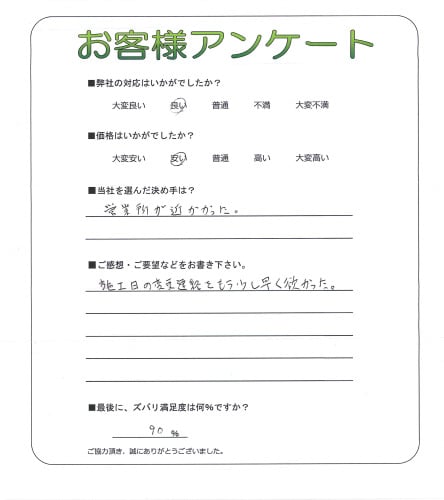 お客様アンケート
■弊社の対応はいかがでしたか？
大変良い 良い 普通 不満 大変不満
■価格はいかがでしたか？
大変安い 安い 普通 高い 大変高い
■当社を選んだ決め手は？
営業所が近かかった。
■ご感想・ご要望などをお書き下さい。
施工日の変更連絡をもう少し早く欲かった。
■最後に、ズバリ満足度は何%ですか？
90 %
ご協力頂き、誠にありがとうございました。